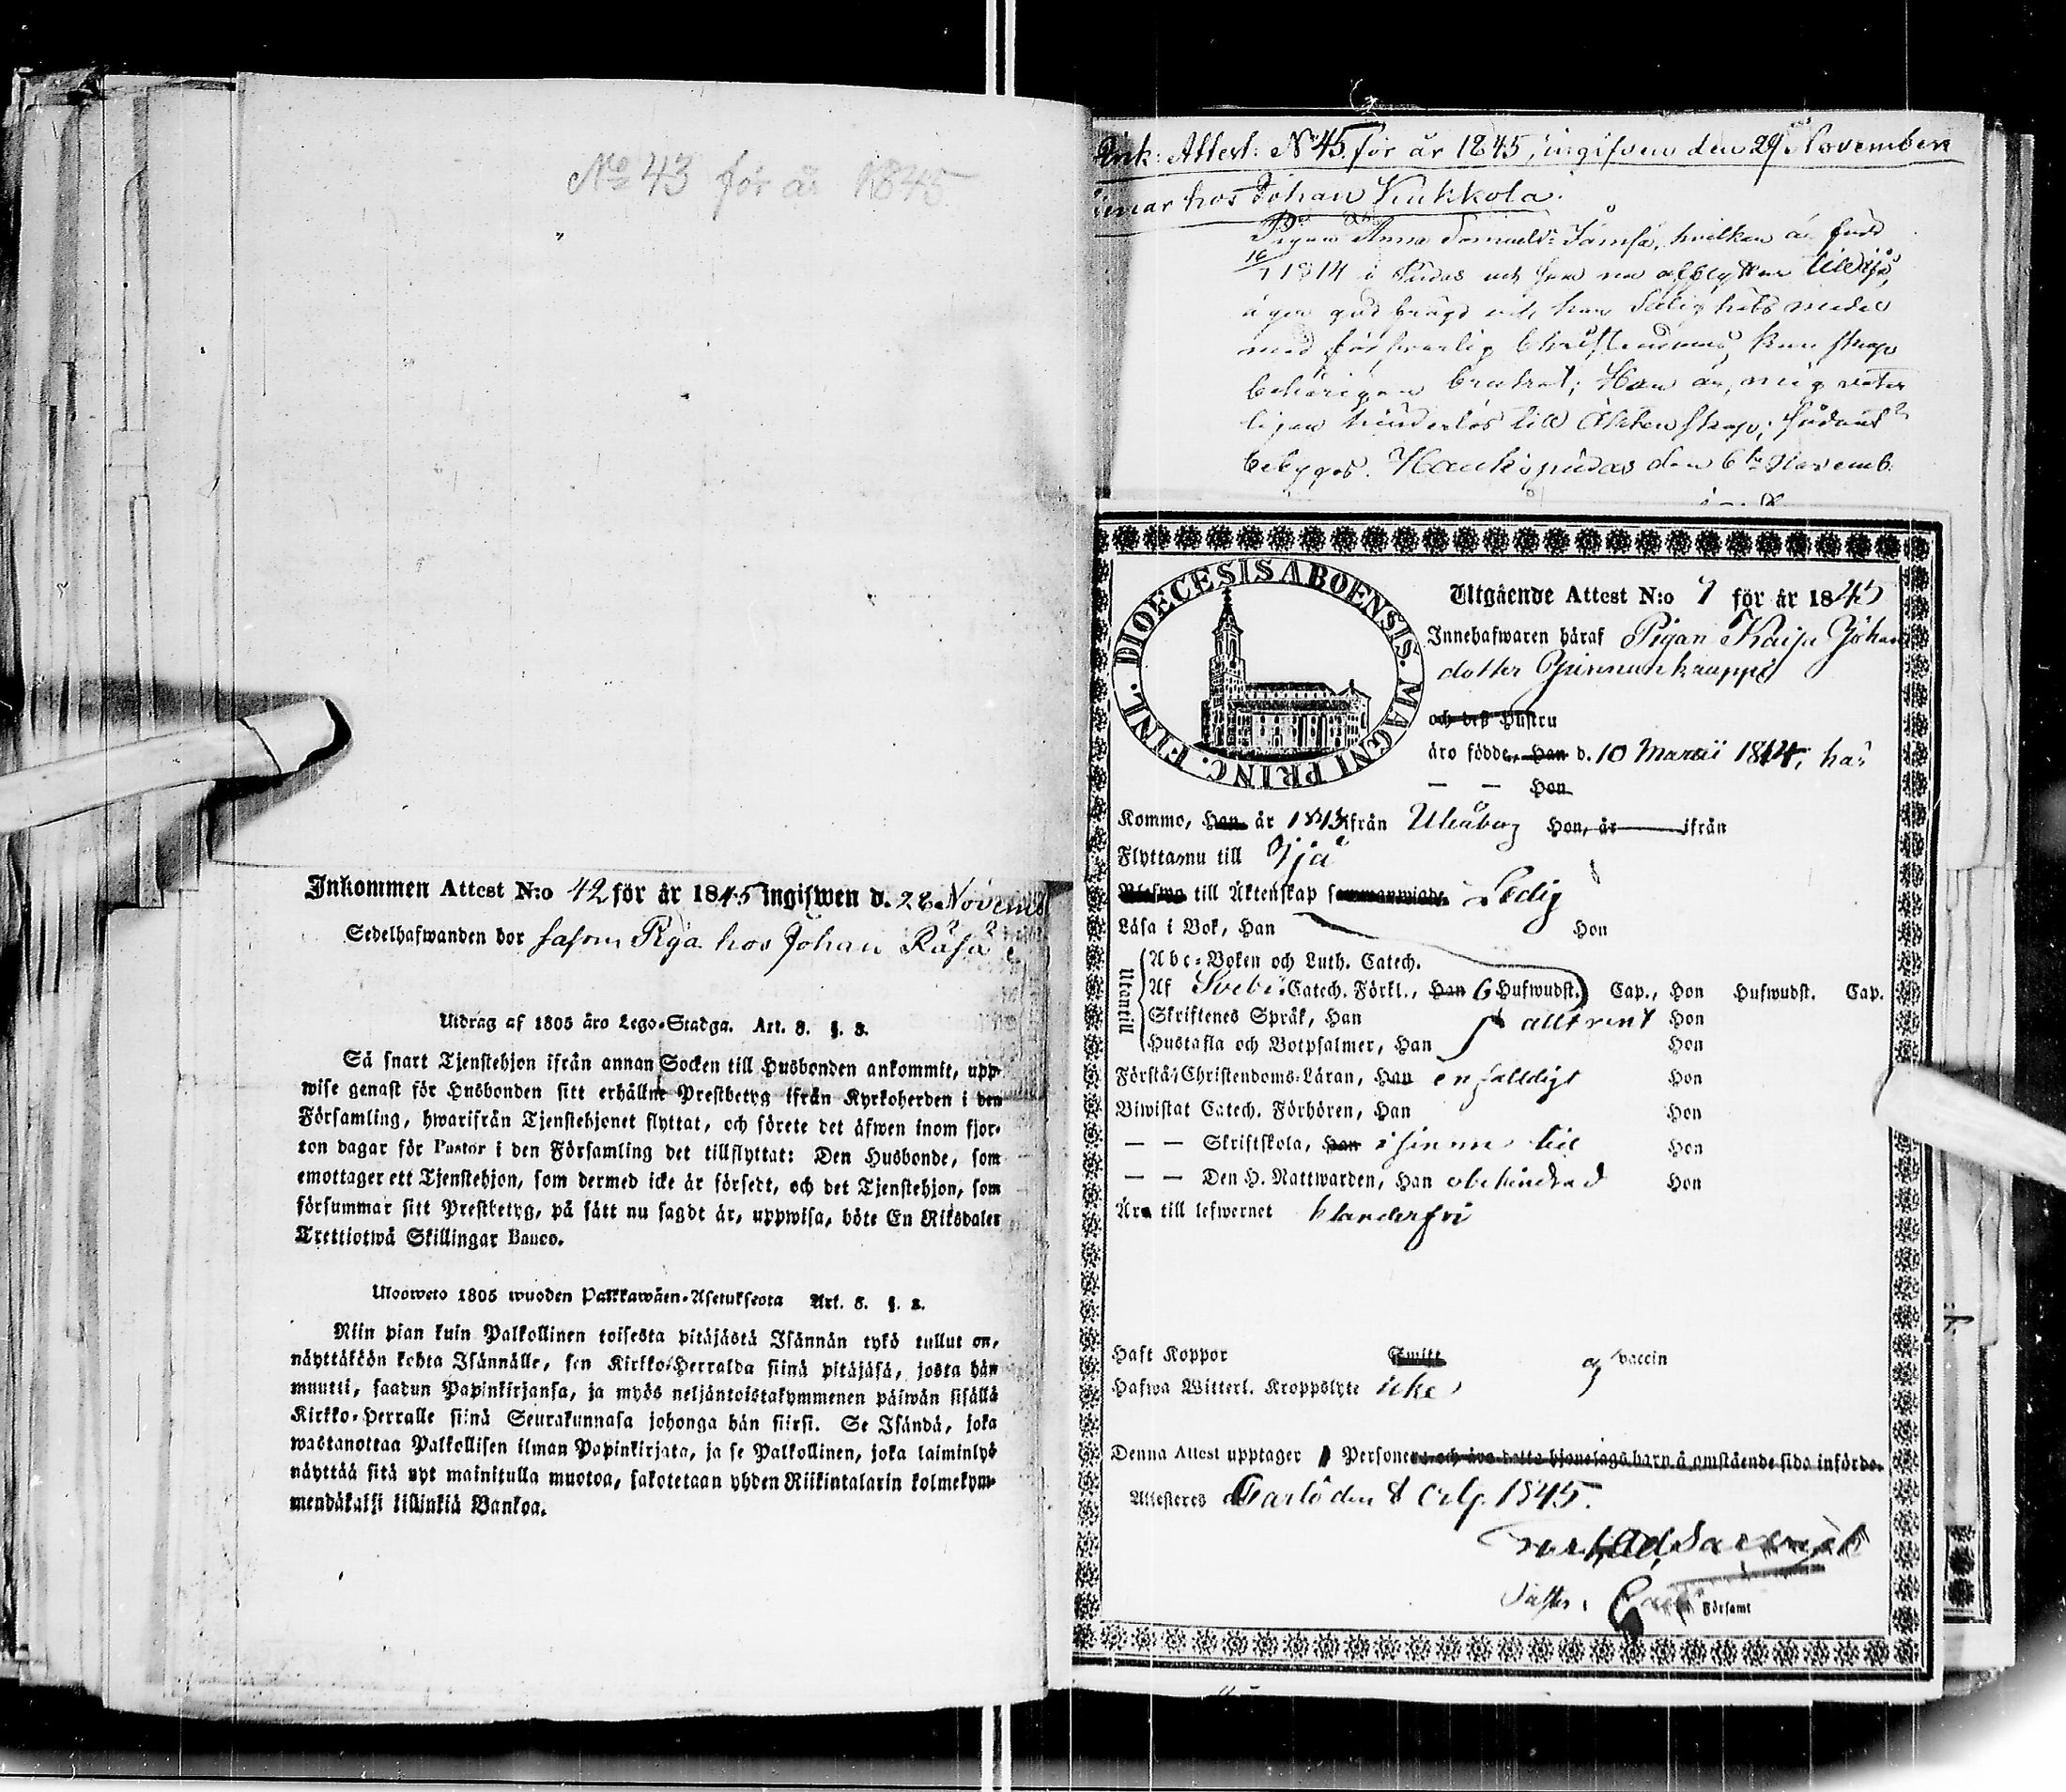 No 43 för år 1845
Inkommen Attest N:o 42 för år 1845 ingifwen d. 28 Novemb
Sedelhafwanden bor såsom Piga hos Johan Räsä
Utdrag af 1805 års Lego-Stadga. Art. 8. §. 3.
Så snart Tjenstehjon ifrån annan Socken till Husbonden ankommit, upp-
wise genast för Husbonden sitt erhållne Prestbetyg ifrån Kyrkoherden i den
Församling, hwarifrån Tjenstehjonet flyttat, och förete det äfwen inom fjor-
ton dagar för Pastor i den Församling det tillflyttat: Den Husbonde, som
emottager ett Tjenstehjon, som dermed icke är försedt, och det Tjenstehjon, som
försummar sitt Prestbetyg, på sätt nu sagdt är, uppwisa, böte En Riksdaler
Trettiotwå Skillingar Banco.
Ulosweto 1805 wuoden Palkkawäen-Asetuksesta Art. 8. §. 3.
Niin pian kuin Palkollinen toisesta pitäjästä Isännän tykö tullut on,
näyttäköön kohta Isännälle, sen Kirkko-Herralda siinä pitäjäsä, josta hän
muutti, saadun Papinkirjansa, ja myös neljäntoistakymmenen päiwän sisällä
Kirkko-Herralle siinä Seurakunnasa johonga hän siirsi. Se Isändä, joka
wastanottaa Palkollisen ilman Papinkirjata, ja se Palkollinen, joka laiminlyö
näyttää sitä nyt mainitulla muotoa, sakotetaan yhden Riikintalarin kolmekym-
mendäkaksi killinkiä Bankoa.
Ink: Attest: No 45 för år 1845, ingifven den 29 November
tjenar hos Johan Kukkola.
Pigan Anna Samuelsd: Jämsä, hvilken är född
16/7 1814 i Pudas och som nu afflyttar till Ijå,
äger god frägd och har Salighets medel
med försvarlig Christendoms kunskap
behörigen brukat; Hon är, mig veter
ligen hinderlös till Äktenskap; sådant
betygas. Haukipudas den 6te Novemb.
DIOECESIS ABOENSIS. MAGNI PRINC. FINL.
Utgående Attest N:o 7 för år 1845
Innehafwaren häraf Pigan Kaisa Johans
dotter
och dess Hustru
äro födde, Han d. 10 Martii 1814, har
— — Hon
Kommo, Han år ifrån Uleåborg Hon, år ifrån
Flytta nu till Ijå
till Äktenskap Ledig
Läsa i Bok, Han Hon
Utantill
Abc-Boken och Luth. Catech.
Af Svebi. Catech. Förkl., Han 6 Hufwudst. Cap., Hon Hufwudst. Cap.
Skriftenes Språk, Han allt rent Hon
Hustafla och Botpsalmer, Han Hon
Förstå Christendoms-Läran, Han enfaldigt Hon
Biwistat Catech. Förhören, Han Hon
— — Skriftskola, Han i sinom tid Hon
— — Den H. Nattwarden, Han obehindrad Hon
Äro till lefwernet klanderfri
Haft Koppor vaccin
Hafwa Witterl. Kroppslyte icke
Denna Attest upptager 1 Personer och äro detta hjonelags barn å omstående sida införde.
Attesteres Carlö den 1845.
Pastor i Församl